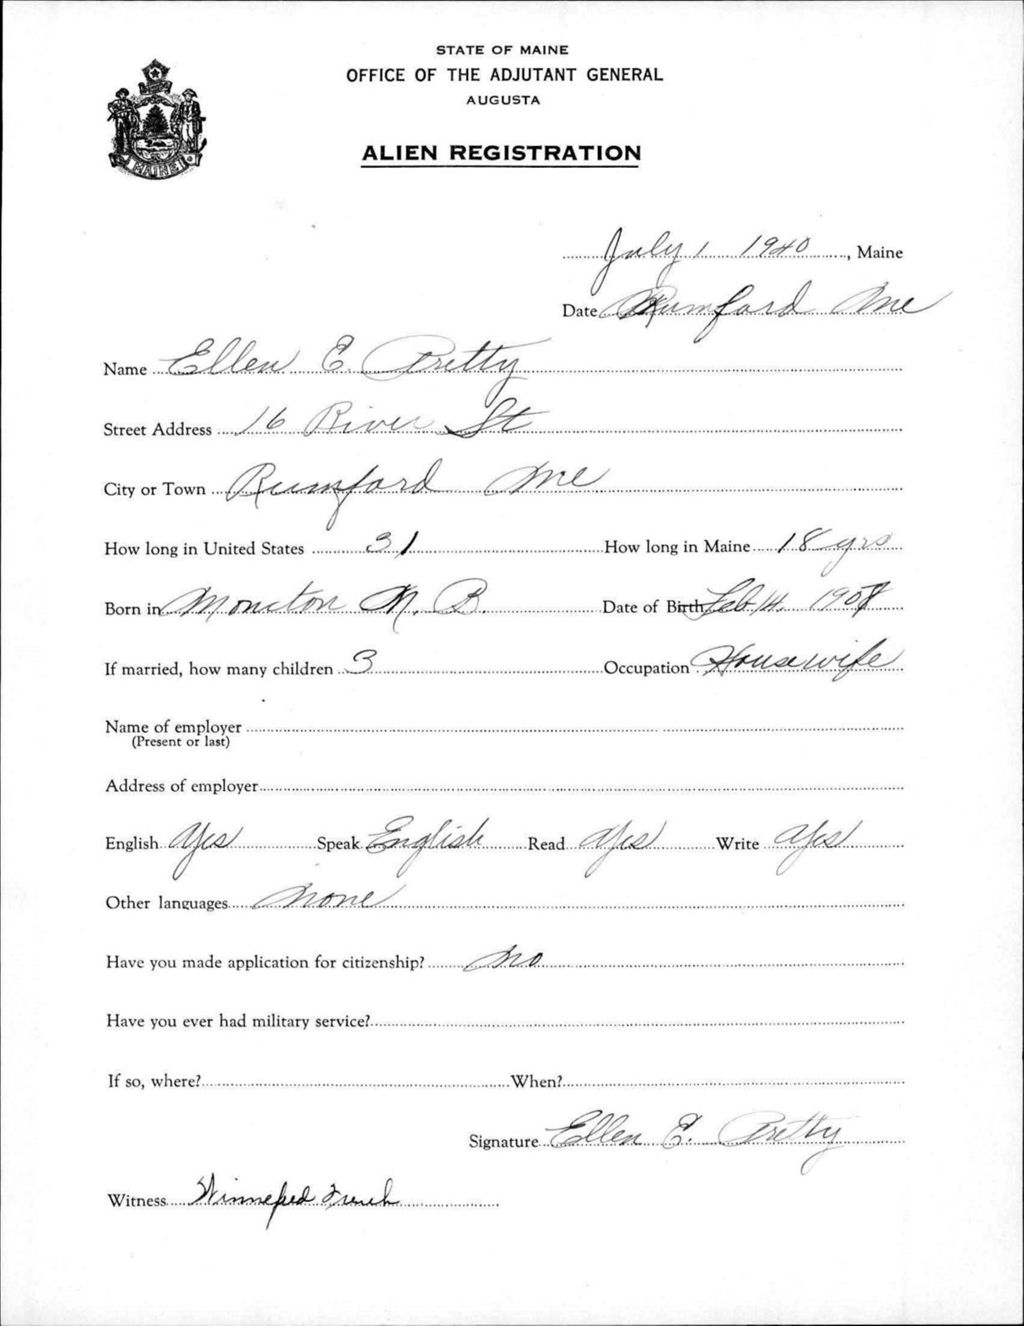 STATE OF MAINE
OFFICE OF THE ADJUTANT GENERAL
AUGUSTA
ALIEN REGISTRATION
MAINE
July 1 1940, Maine
Date Rumford Me
Name Ellen E. Pretty
Street Address 16 River St
City or Town Rumford Me
How long in United States 31 How long in Maine 18 yrs
Born in Moncton N. B Date of Birth Feb 14, 1908
If married, how many children 3 Occupation Housewife
Name of employer
(Present or last)
Address of employer
English Yes Speak English Read Yes Write Yes
Other languages None
Have you made application for citizenship? No
Have you ever had military service?
If so, where? When?
Signature Ellen E. Pretty
Witness Winnefred French